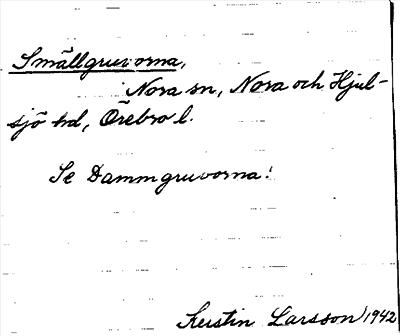 Smällgruvorna,
Nora sn, Nora och Hjul-
sjö hd, Örebro l.
Se Dammgruvorna!
Kerstin Larsson 1942